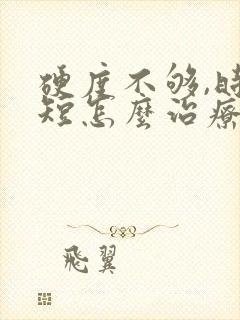 硬度不够,時
短怎麼治療
飛翼